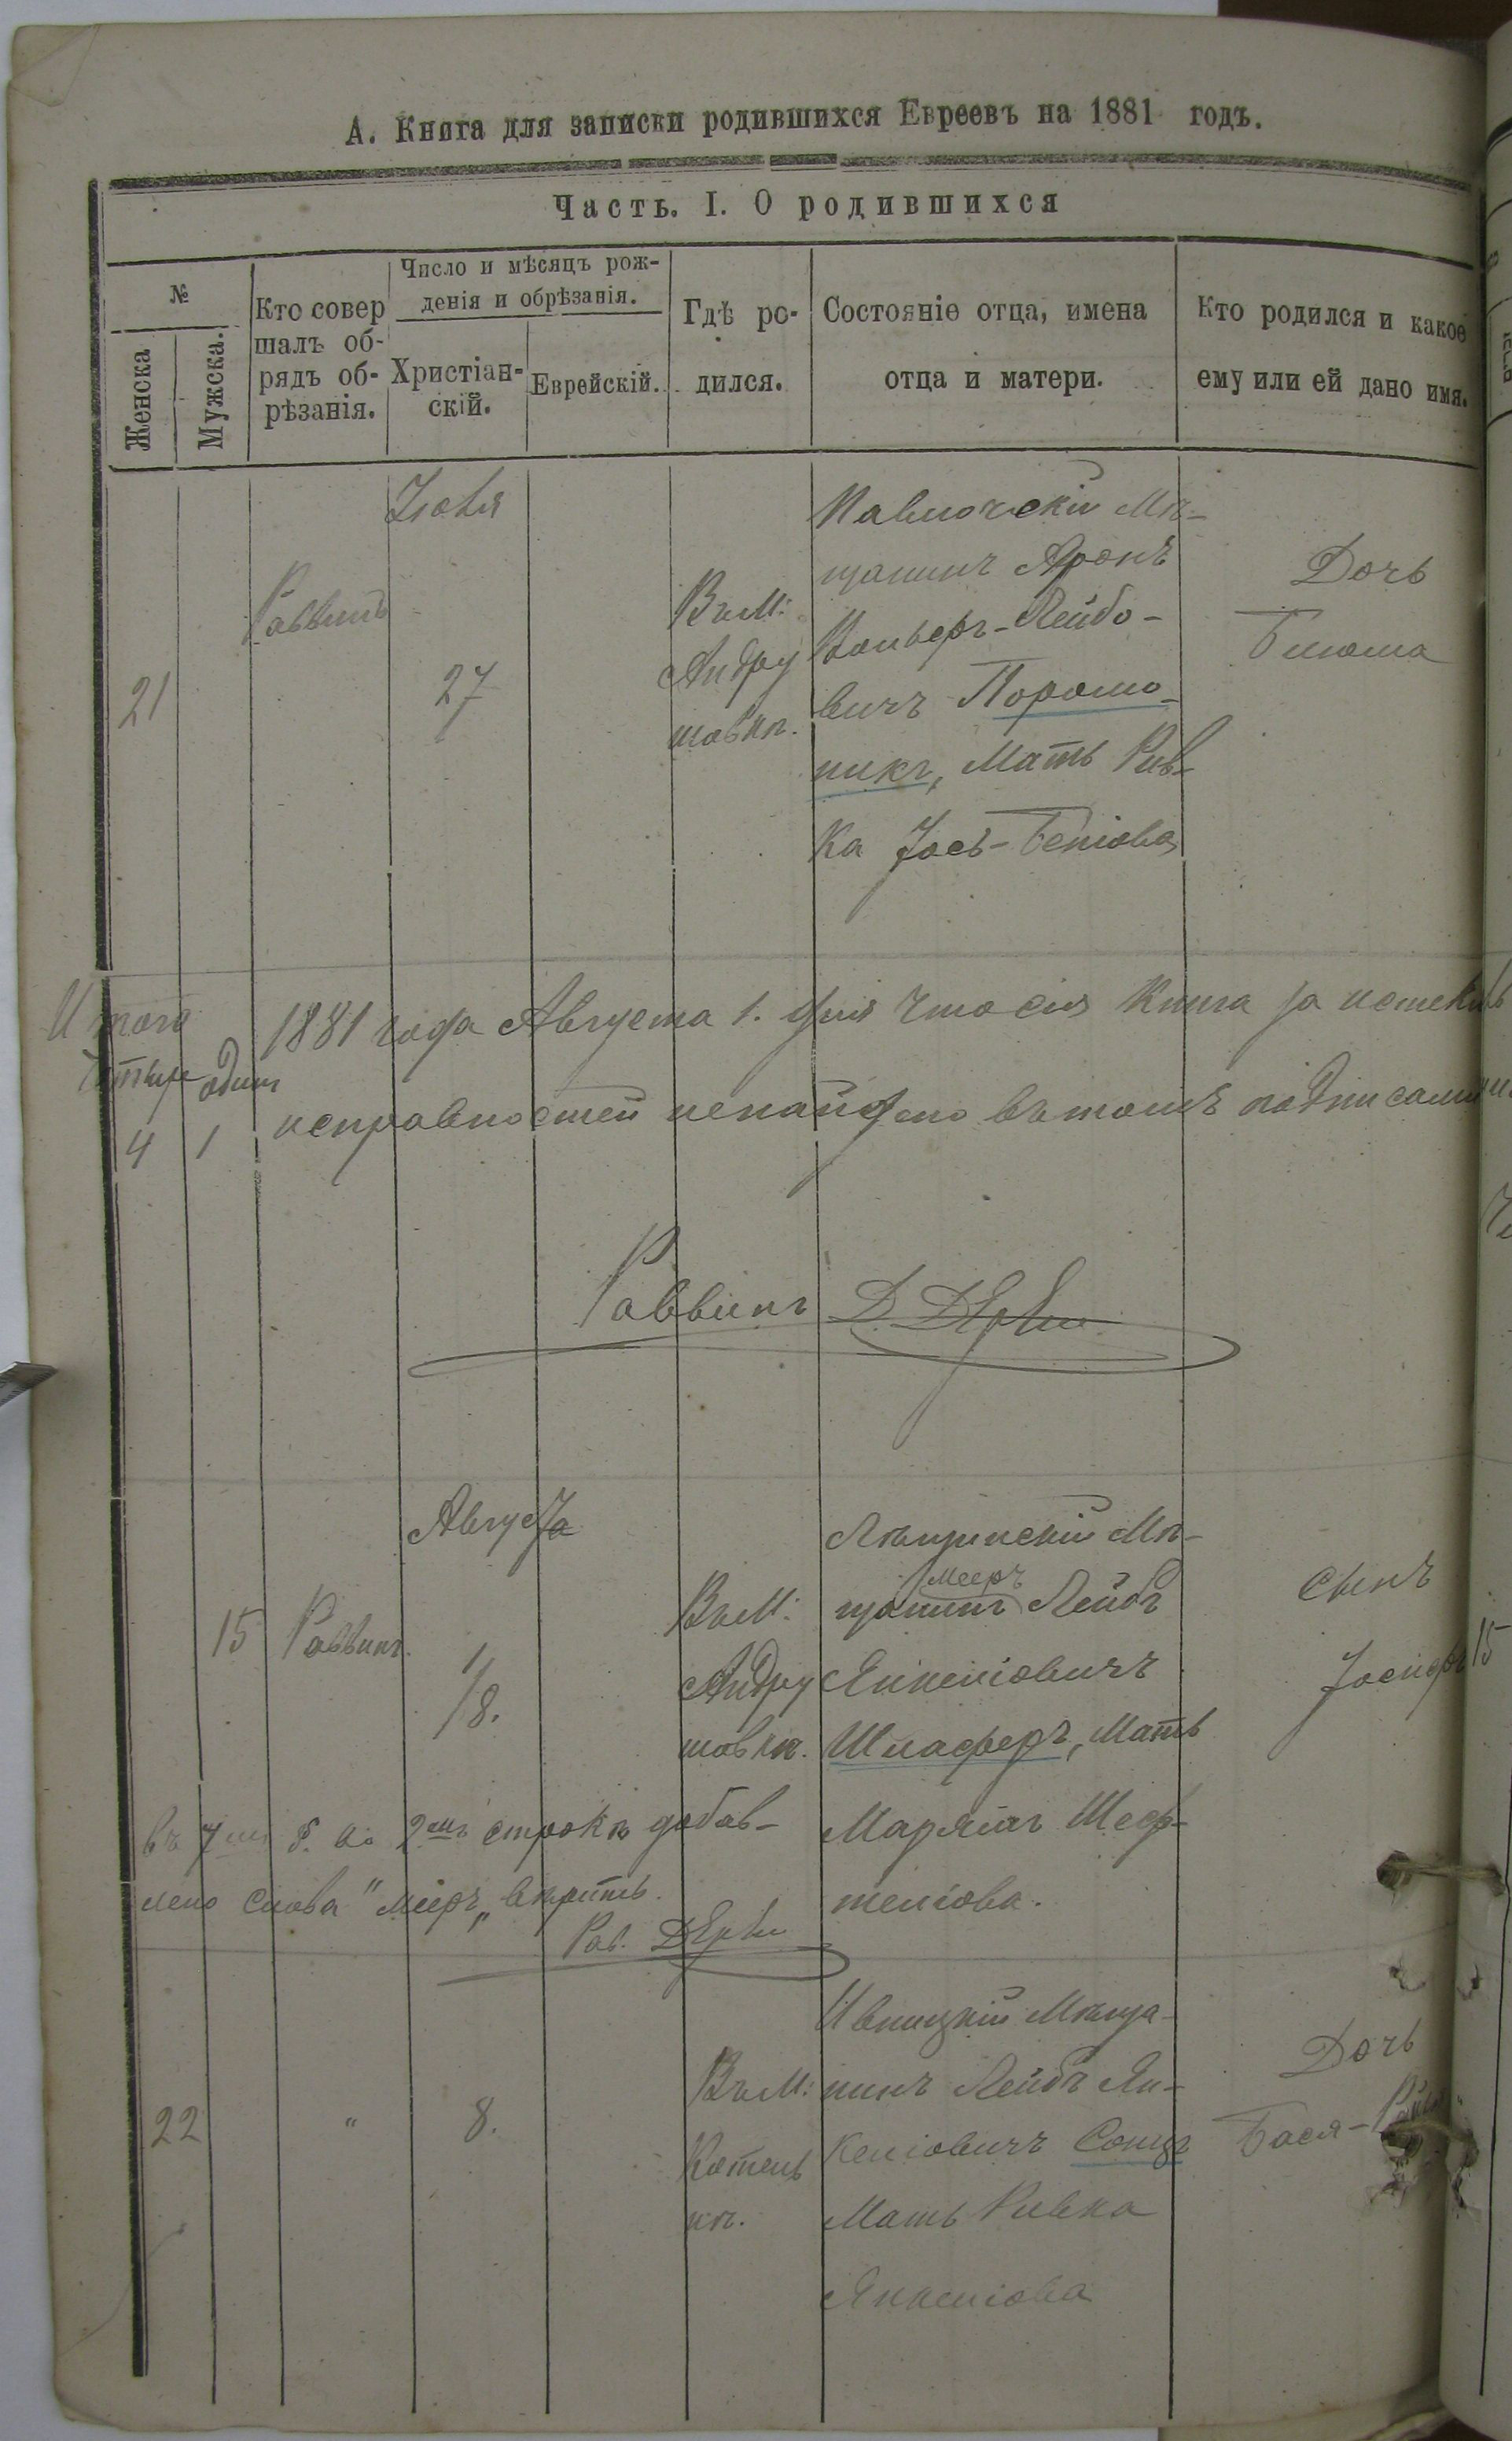 А. Книга для записки родившихся Евреевъ на 1881 годъ.
Часть. I. О родившихся
№
Женска
Мужска.
Кто совер
шалъ об-
рядъ об-
рѣзанія.
Число и мѣсяцъ рож-
денія и обрѣзанія.
Христіан-
скій.
Еврейскій.
Гдѣ ро-
дился.
Состояніе отца, имена
отца и матери.
Кто родился и какое
ему или ей дано имя.
21
Раввинъ
Іюля
27
Въ М:
Андру
шовкѣ.
Павлочскій Мѣ-
щанинъ Аронъ
Вольфъ-Лейбо-
вичъ
никъ, Мать Рив-
ка Іось-
Дочь
Блюма
Итого
Четыре одинъ
4 1
1881 года Августа 1. дня что сія Книга за истекшій
исправностей ненайдено въ томъ подписали
Раввинъ Д.
15
Раввинъ.
Августа
1/8.
Въ М:
Андру
шовкѣ.
Мѣ-
Мееръ
щанинъ Лейбъ
Янкеліовичъ
Шлаферъ, Мать
Маріамъ Шеф-
теліова.
Сынъ
Іосифъ
15
въ 7ой по 2ой строкѣ добав-
лено слова "Мееръ" вѣрить.
Рав.
22
"
8.
Въ М:
Котель
нѣ.
Ивницкій Мѣща-
нинъ Лейбъ Ян-
келіовичъ
Мать Ривка
Янкеліова
Дочь
Бася-